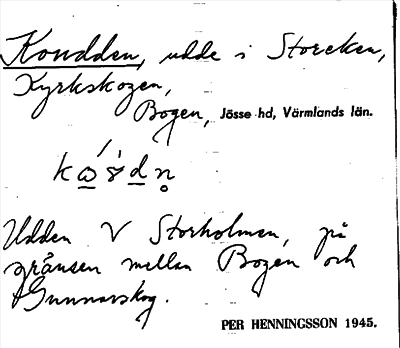 Kondden, udde i Storeken,
Kyrkskogen,
Bogen, Jösse hd, Värmlands län.
Udden V Storholmen, på
gränsen mellan Bogen och
Gunnarskog.
PER HENNINGSSON 1945.